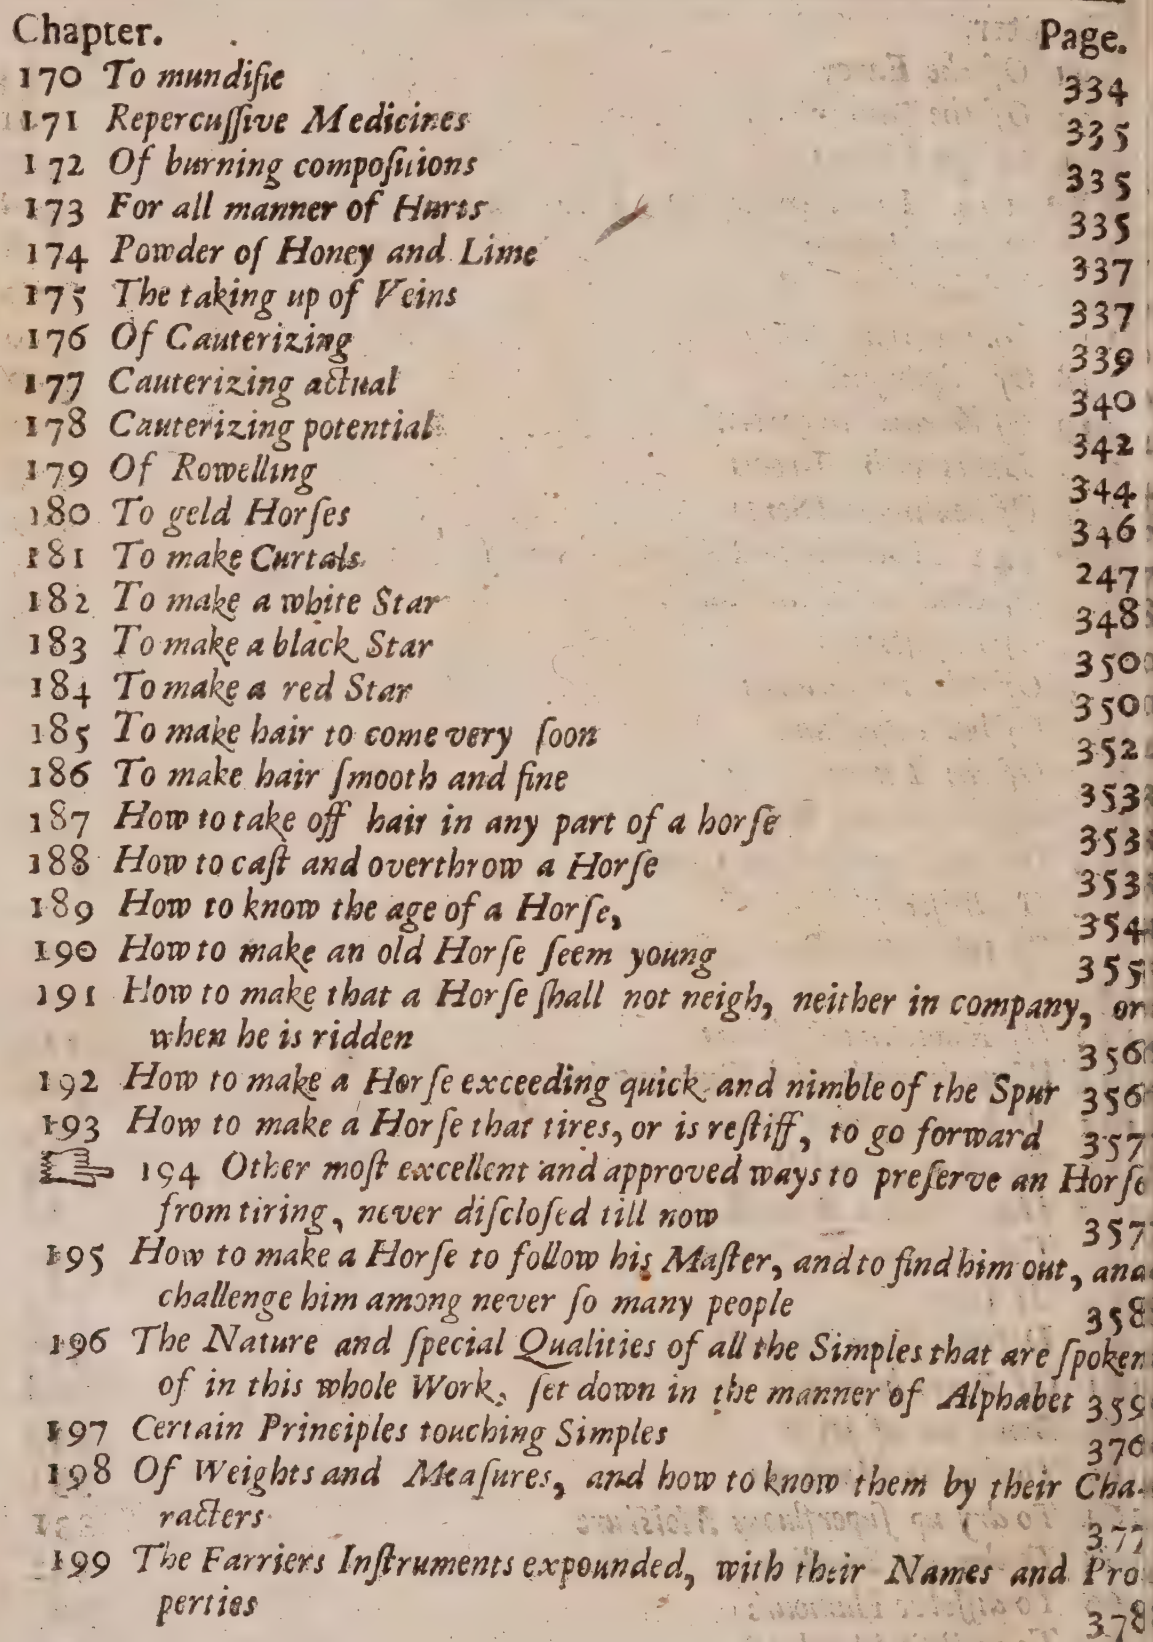 Chapter. Page.
170 To mundifie 334
171 Repercuſſive Medicines 335
172 Of burning compoſitions 335
173 For all manner of Hurts 335
174 Powder of Honey and Lime 337
175 The taking up of Veins 337
176 Of Cauterizing 339
177 Cauterizing actual 340
178 Cauterizing potential 342
179 Of Rowelling 344
180 To geld Horſes 346
181 To make Curtals 247
182 To make a white Star 348
183 To make a black Star 350
184 To make a red Star 350
185 To make hair to come very ſoon 352
186 To make hair ſmooth and fine 353
187 How to take off hair in any part of a horſe 353
188 How to caſt and overthrow a Horſe 353
189 How to know the age of a Horſe, 354
190 How to make an old Horſe ſeem young 355
191 How to make that a Horſe ſhall not neigh, neither in company, or
when he is ridden 356
192 How to make a Horſe exceeding quick and nimble of the Spur 356
193 How to make a Horſe that tires, or is reſtiff, to go forward 357
☞ 194 Other moſt excellent and approved ways to preſerve an Horſe
from tiring, never diſcloſed till now 357
195 How to make a Horſe to follow his Maſter, and to find him out, and
challenge him among never ſo many people 358
196 The Nature and ſpecial Qualities of all the Simples that are ſpoken
of in this whole Work, ſet down in the manner of Alphabet 359
197 Certain Principles touching Simples 376
198 Of Weights and Meaſures, and how to know them by their Cha-
racters 377
199 The Farriers Inſtruments expounded, with their Names and Pro
perties 378